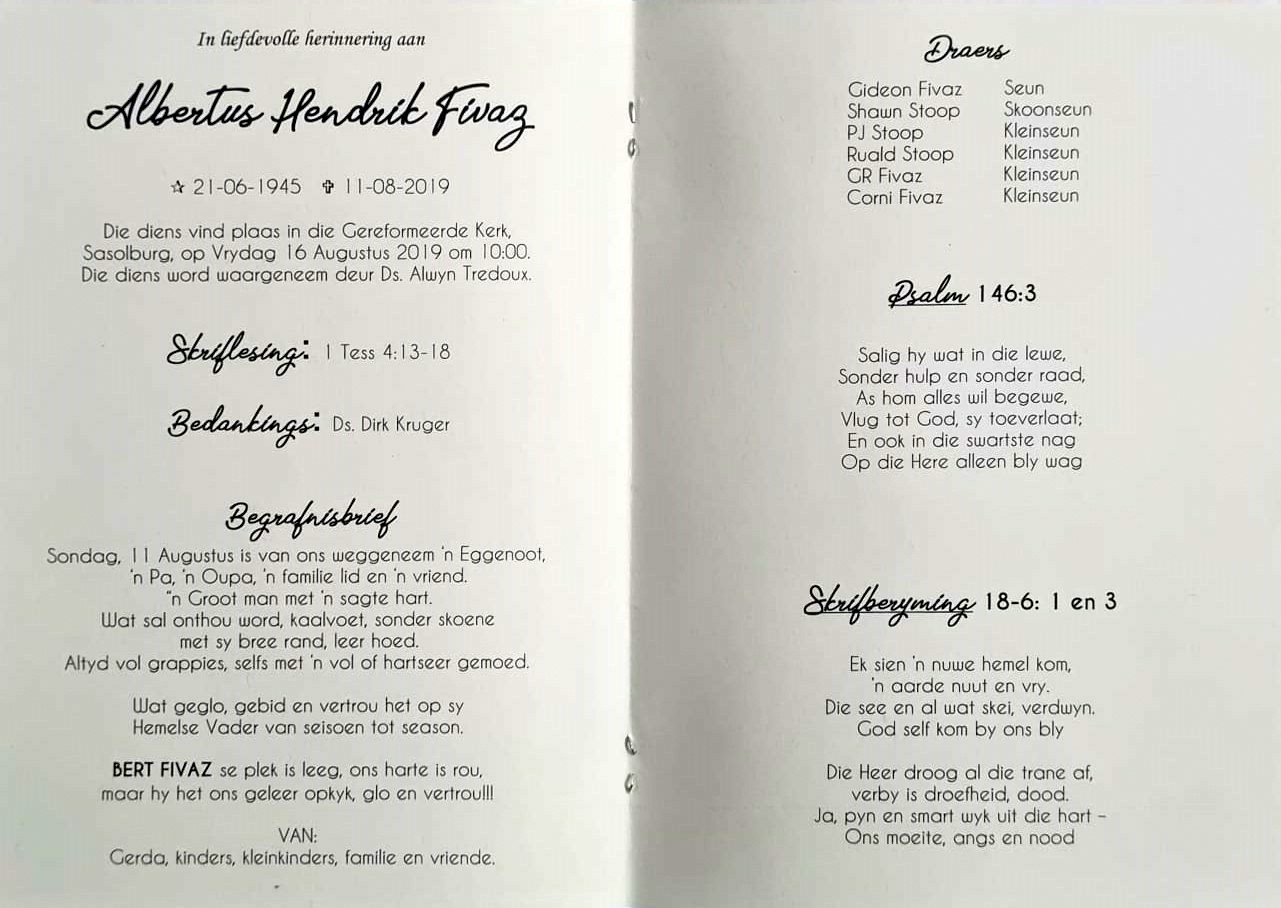 In liefdevolle herinnering aan
Albertus Hendrik Fivaz
☆ 21-06-1945 ✞ 11-08-2019
Die diens vind plaas in die Gereformeerde Kerk,
Sasolburg, op Vrydag 16 Augustus 2019 om 10:00.
Die diens word waargeneem deur Ds. Alwyn Tredoux.
Skriflesing: 1 Tess 4:13-18
Bedankings: Ds. Dirk Kruger
Begrafnisbrief
Sondag, 11 Augustus is van ons weggeneem 'n Eggenoot,
'n Pa, 'n Oupa, 'n familie lid en 'n vriend.
"n Groot man met 'n sagte hart.
Wat sal onthou word, kaalvoet, sonder skoene
met sy bree rand, leer hoed.
Altyd vol grappies, selfs met 'n vol of hartseer gemoed.
Wat geglo, gebid en vertrou het op sy
Hemelse Vader van seisoen tot season.
BERT FIVAZ se plek is leeg, ons harte is rou,
maar hy het ons geleer opkyk, glo en vertrou!!!
VAN:
Gerda, kinders, kleinkinders, familie en vriende.
Draers
Gideon Fivaz Seun
Shawn Stoop Skoonseun
PJ Stoop Kleinseun
Ruald Stoop Kleinseun
GR Fivaz Kleinseun
Corni Fivaz Kleinseun
Psalm 146:3
Salig hy wat in die lewe,
Sonder hulp en sonder raad,
As hom alles wil begewe,
Vlug tot God, sy toeverlaat;
En ook in die swartste nag
Op die Here alleen bly wag
Skrifberyming 18-6: 1 en 3
Ek sien 'n nuwe hemel kom,
'n aarde nuut en vry.
Die see en al wat skei, verdwyn.
God self kom by ons bly
Die Heer droog al die trane af,
verby is droefheid, dood.
Ja, pyn en smart wyk uit die hart –
Ons moeite, angs en nood